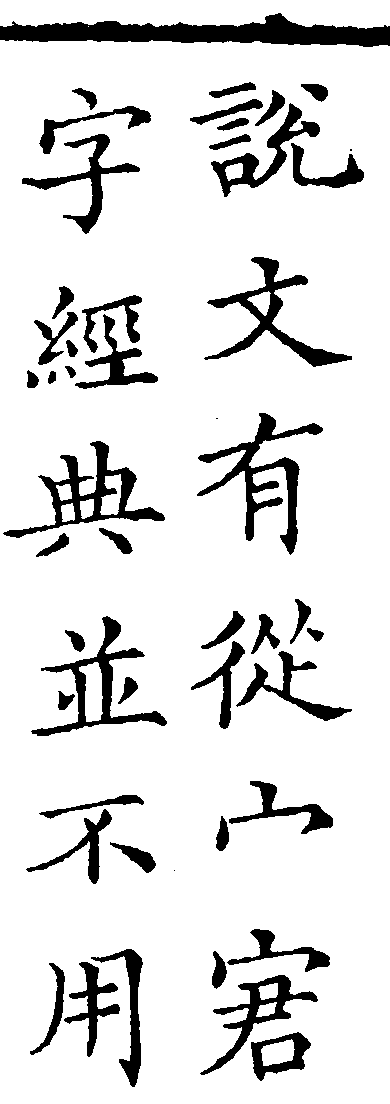 說文有從宀窘
字經典並不用